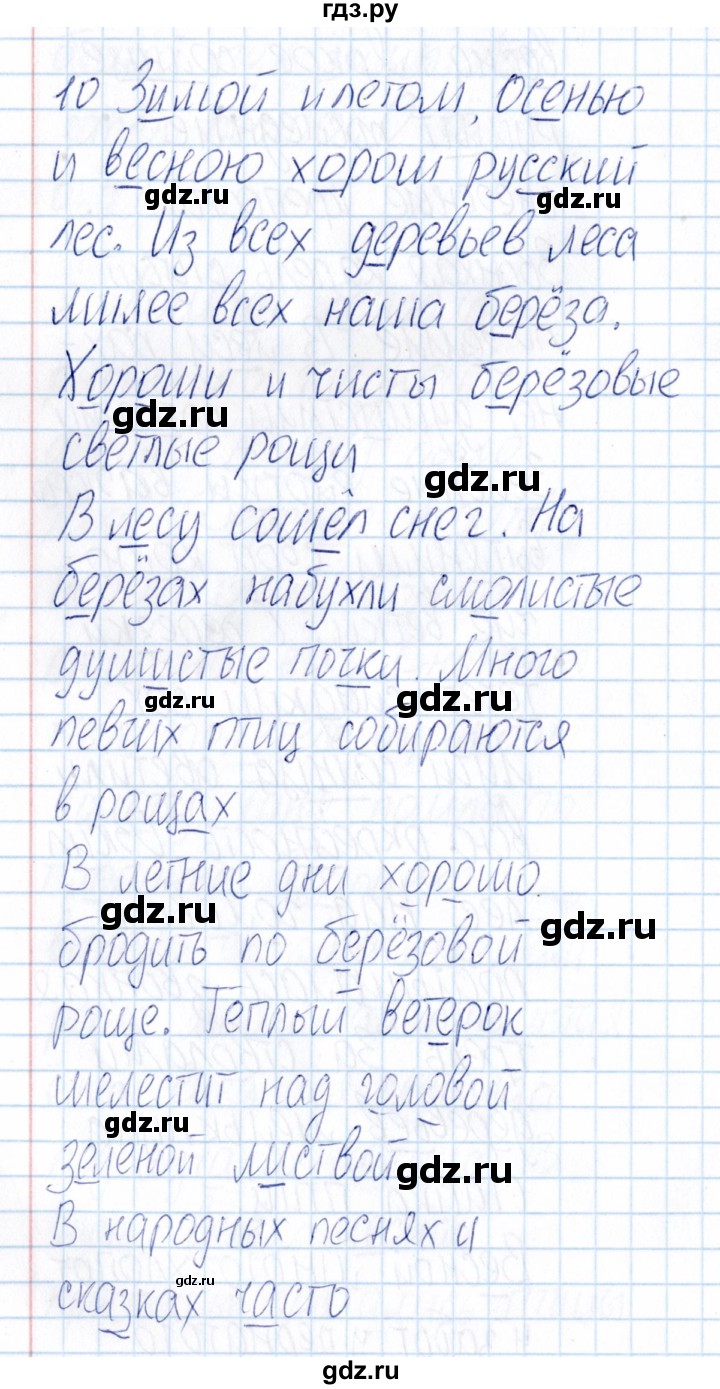 гдз.ру
10 Зимой и летом, осенью
и весною хорош русский
gdz.ru gdz.ru
лес. Из всех деревьев леса
милее всех наша берёза.
Хороши и чисты берёзовые
gdz.ru
светлые рощи
gdz.ru
В лесу сошёл снег. На
берёзах набухли смолистые
душистые почки. Много
gdz.ru gdz.ru
певчих птиц собираются
в рощах
В летние дни хорошо.
gdz.ru
бродить по берёзовой
gdz.ru
роще. Теплый ветерок
шелестит над головой
gdz.ru
зеленой листвой
gdz.ru
В народных песнях и
gdz.ru
сказках часто
gdz.ru